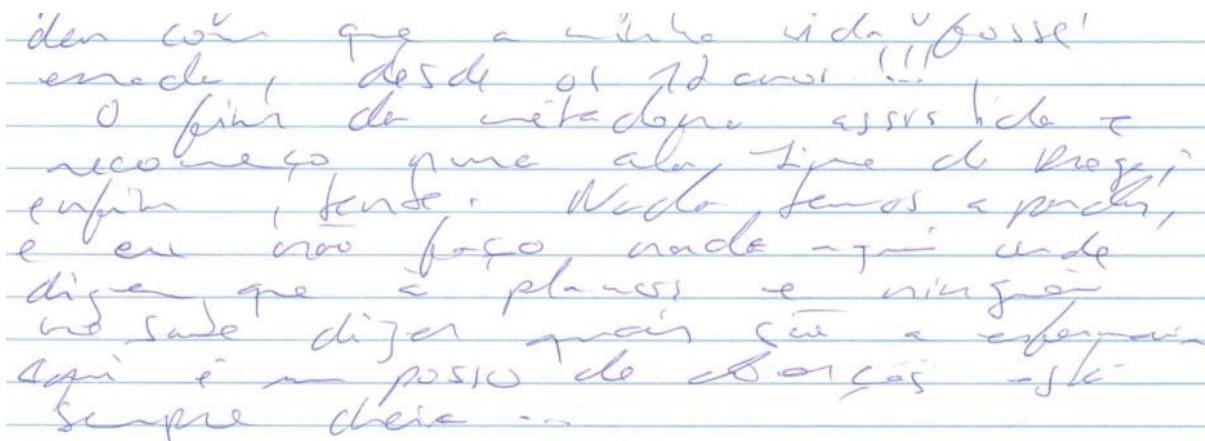 deu com que a minha vida fosse
errada, desde os 12 anos!!!
O fim da metadona assistida e
recomeço numa ala, Livre de Drogas,
enfim, tente. Nada temos a perder,
e eu não faço nada aqui onde
dizem que à planos e ninguém
me sabe dizer quais são a enfermaria
aqui é um posso de doenças está
sempre cheia ...